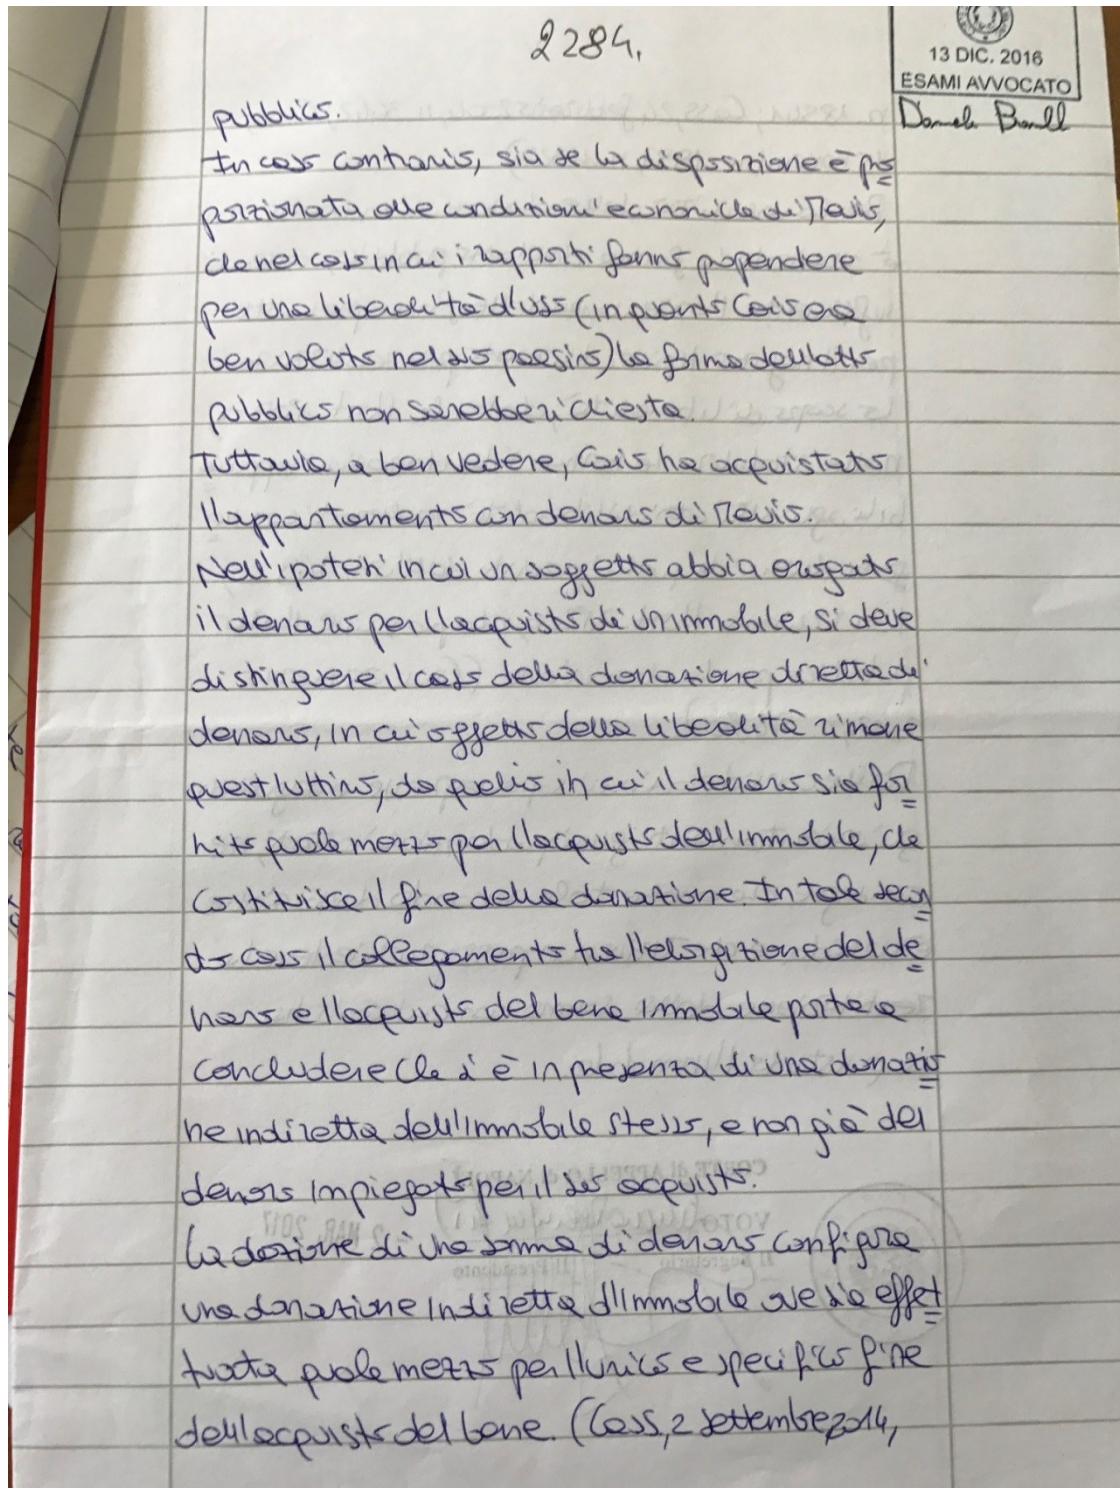 2284.
13 DIC. 2016
ESAMI AVVOCATO
pubblico.
In caso contrario, sia se la disposizione è pro
porzionata alle condizioni economiche di Mevio,
che nel caso in cui i rapporti fanno propendere
per una liberalità d'uso (in quanto Caio era
ben voluto nel suo paesino) la forma dell'atto
pubblico non sarebbe richiesta.
Tuttavia, a ben vedere, Caio ha acquistato
l'appartamento con denaro di Mevio.
Nell'ipotesi in cui un soggetto abbia erogato
il denaro per l'acquisto di un immobile, si deve
distinguere il caso della donazione diretta di
denaro, in cui oggetto della liberalità rimane
quest'ultimo, da quello in cui il denaro sia for
nito quale mezzo per l'acquisto dell'immobile, che
costituisce il fine della donazione. In tale secon
do caso il collegamento tra l'elargizione del de
naro e l'acquisto del bene immobile porta a
concludere che si è in presenza di una donazio
ne indiretta dell'immobile stesso, e non già del
denaro impiegato per il suo acquisto.
La dazione di una somma di denaro configura
una donazione indiretta d'immobile ove sia effet
tuata quale mezzo per l'unico e specifico fine
dell'acquisto del bene. (Cass, 2 settembre 2014,